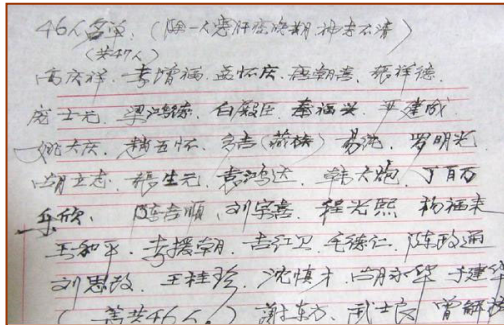 46人名单.(除一人患肝癌晚期.神志不清)
(共47人)
高庆祥.李增福.孟怀庆.赵朝喜.张祥德.
庞士元.梁鸿德.白殿臣.秦福兴.尹建成
姚大庆.赵五怀.多吉(藏族)易沅.罗明光
胡立志.杨生元.袁鸿达.韩大炮.丁百万
乐欣.陈吉顺.刘宇喜.程光熙 杨福来
王和平.李援朝.吉红卫.毛德仁.陈政通
刘思政.王桂珍.沈慎才.胡永华.于建华
(等共46人.)谢东方.武士良.曾解放